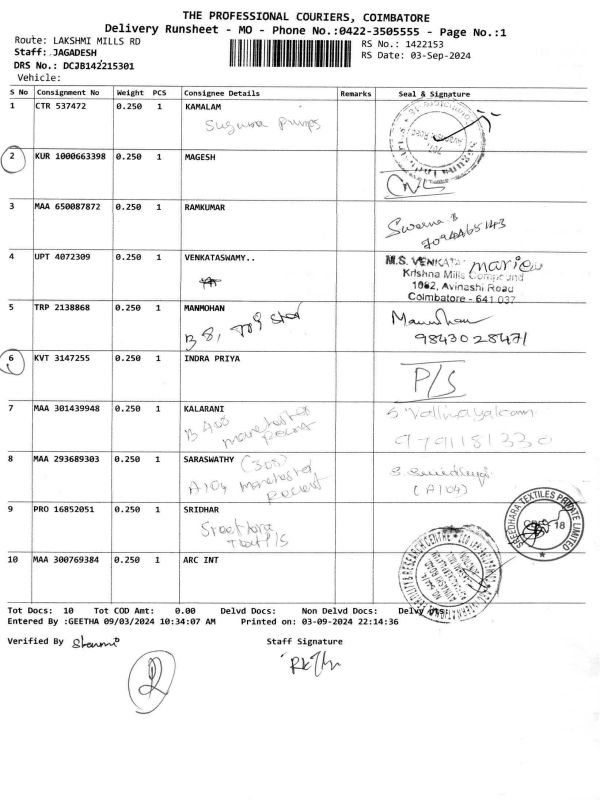 THE PROFESSIONAL COURIERS, COIMBATORE
Delivery Runsheet - MO - Phone No.:0422-3505555 - Page No.:1
Route: LAKSHMI MILLS RD
RS No.: 1422153
Staff: JAGADESH
RS Date: 03-Sep-2024
DRS No.: DCJB142215301
Vehicle:
S No Consignment No Weight PCS Consignee Details Remarks Seal & Signature
1 CTR 537472 0.250 1 KAMALAM
Suguna Pumps
2 KUR 1000663398 0.250 1 MAGESH
3 MAA 650087872 0.250 1 RAMKUMAR
Swarna
4 UPT 4072309 0.250 1 VENKATASWAMY..
M.S. VENKATA
Krishna Mills Compound
1062, Avinashi Road
Coimbatore - 641 037
5 TRP 2138868 0.250 1 MANMOHAN
B 8,
9843028471
6 KVT 3147255 0.250 1 INDRA PRIYA
P/S
7 MAA 301439948 0.250 1 KALARANI
B 408
S. Vallinayakam
9791181330
8 MAA 293689303 0.250 1 SARASWATHY (308)
A104 Manchester
Regent
(A104)
9 PRO 16852051 0.250 1 SRIDHAR
SREEDHARA TEXTILES PRIVATE LIMITED
10 MAA 300769384 0.250 1 ARC INT
Tot Docs: 10 Tot COD Amt: 0.00 Delvd Docs: Non Delvd Docs: Delvy Pts:
Entered By :GEETHA 09/03/2024 10:34:07 AM Printed on: 03-09-2024 22:14:36
Verified By
Staff Signature